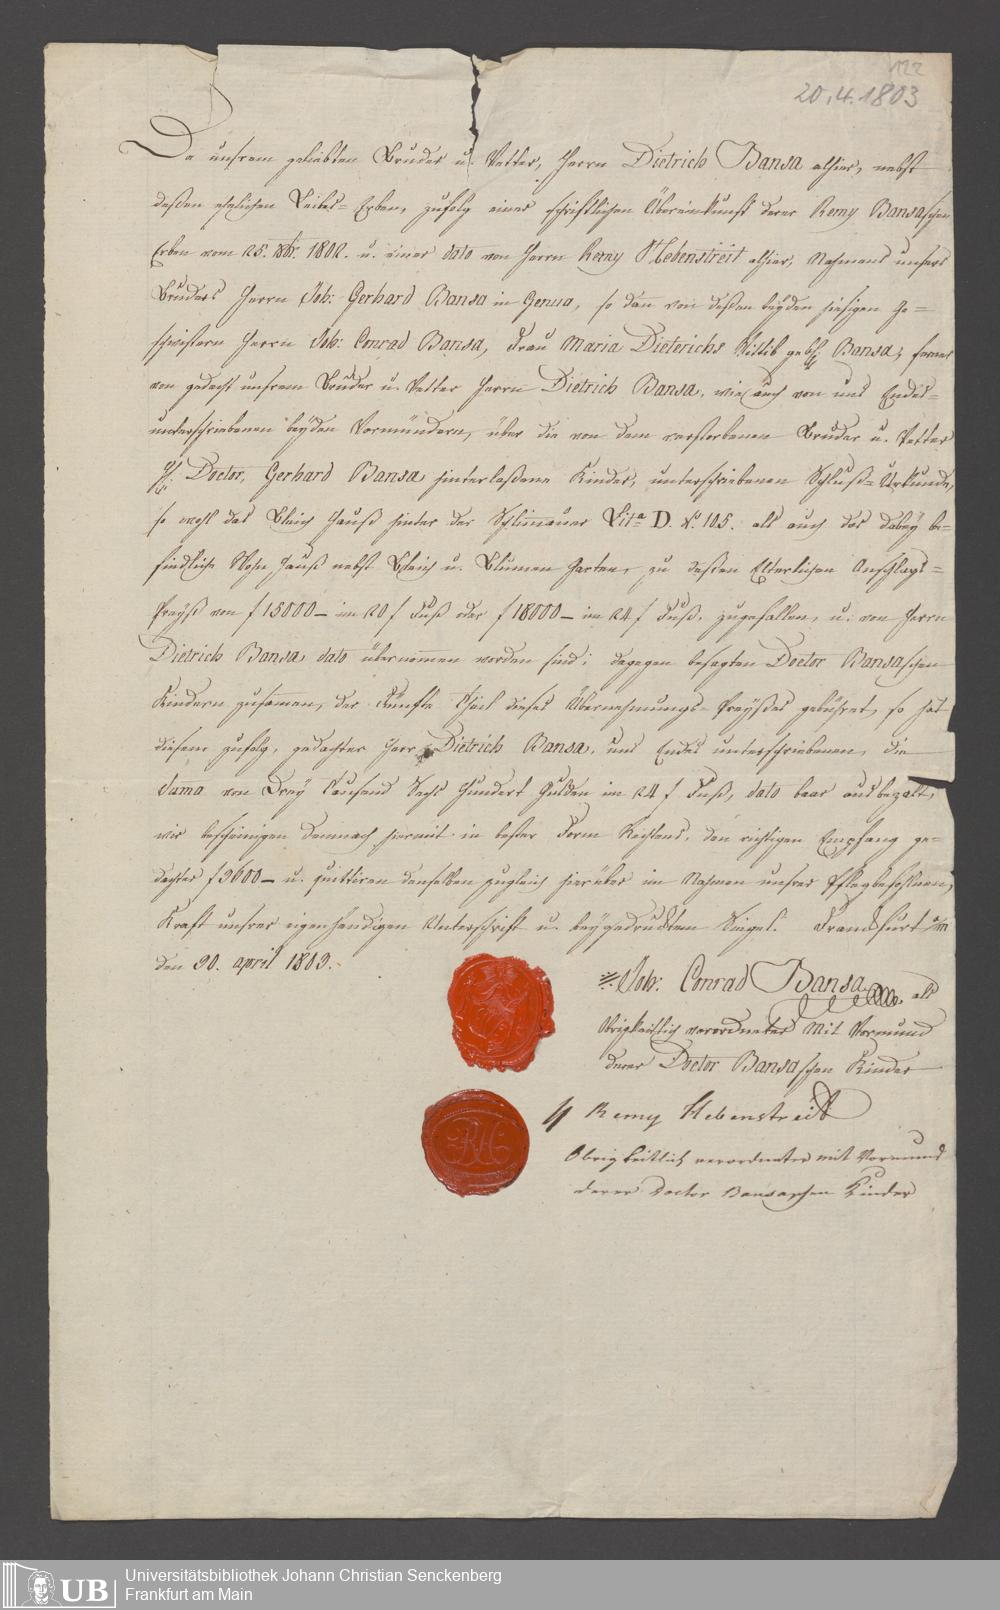 122
20.4.1803
Da unsrem geliebten Bruder u. Vetter, Herrn Dietrich Bansa alhier, nebst
deßen ehelichen Leibes=Erben, zufolg einer schriftlichen Übereinkunft derer Remy Bansaschen
Erben vom 25. 1802. u. einer dato von Herrn Remy Hebenstreit alhier, Nahmens unsers
Bruders Herrn Joh: Gerhard Bansa in Genua, so dan von deßen beyden hiesigen Ge=
schwistern Herrn Joh: Conrad Bansa, Frau Maria Dieterichs Wittib geb: Bansa, ferner
von gedacht unsrem Bruder u. Vetter Herrn Dietrich Bansa, wie auch von uns Endes=
unterschriebenen beyden Vormündern, über die von dem verstorbenen Bruder u. Vetter
H: Doctor, Gerhard Bansa hinterlaßene Kinder, unterschriebenen Schluß=Urkunde,
so wohl das Bleich Hauß hinter der Schlimauer Litª D. Nº 105. als auch das dabey be=
findliche Wohn Hauß nebst Bleich u. Blumen Garten, zu deßen Elterlichen Anschlags=
Preyß von f 15000– im 20 f Fuß oder f 18000– im 24 f Fuß, zugefallen, u. von Herrn
Dietrich Bansa dato übernomen worden sind; dagegen besagten Doctor Bansaschen
Kindern zusamen, der Fünfte Theil dieses Übernehmungs=Preyßes gebühret, so hat
diesem zufolg, gedachter Herr Dietrich Bansa, uns Endes unterschriebenen, die
Suma von Drey Tausend Sechs Hundert Gulden im 24 f Fuß, dato baar ausbezalt,
wir bescheinigen demnach hiermit in bester Form Rechtens, den richtigen Empfang ge=
dachter f 3600– u. quittiren denselben zugleich hierüber im Nahmen unsrer Pflegbefohlnen,
Kraft unsrer eigenhändigen Unterschrift u. beygedrucktem Siegel. Franckfurt a/m
den 20. april 1803.
Joh: Conrad Bansa als
Obrigkeitlich verordneter Mit Vormund
derer Doctor Bansaschen Kinder
Remy Hebenstreit
Obrigkeitlich verordneter mit Vormund
derer Doctor Bansaschen Kinder
RH
UB
Universitätsbibliothek Johann Christian Senckenberg
Frankfurt am Main